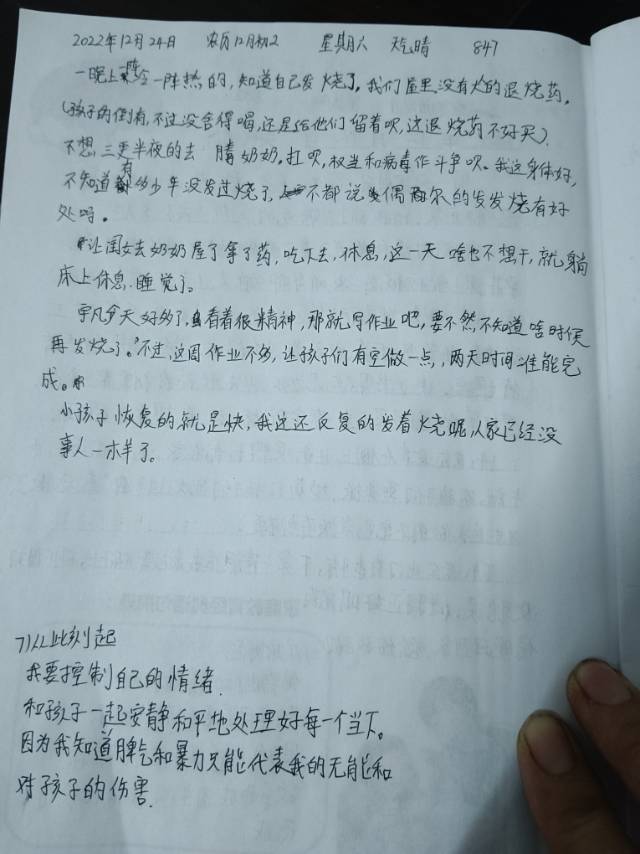 2022年12月24日 农历12月初2 星期六 天气晴 847
一晚上阵冷一阵热的,知道自己发烧了。我们屋里没有大的退烧药。
(孩子的倒有,不过没舍得喝,还是给他们留着呗,这退烧药不好买)
不想三更半夜的去 奶奶,扛呗,权当和病毒作斗争呗。我这身体好,
不知道有多少年没发过烧了,不都说偶尔的发发烧有好
处吗。
让闺女去奶奶屋了拿了药,吃下去,休息,这一天啥也不想干,就躺
床上休息.睡觉了。
宇凡今天好多了,看着很精神,那就写作业吧,要不然不知道啥时候
再发烧了。不过,这周作业不多,让孩子们有空做一点,两天时间准能完
成。
小孩子恢复的就是快,我这还反复的发着烧呢人家已经没
事人一样了。
71从此刻起
我要控制自己的情绪.
和孩子一起安静和平地处理好每一个当下。
因为我知道脾气和暴力只能代表我的无能和
对孩子的伤害.